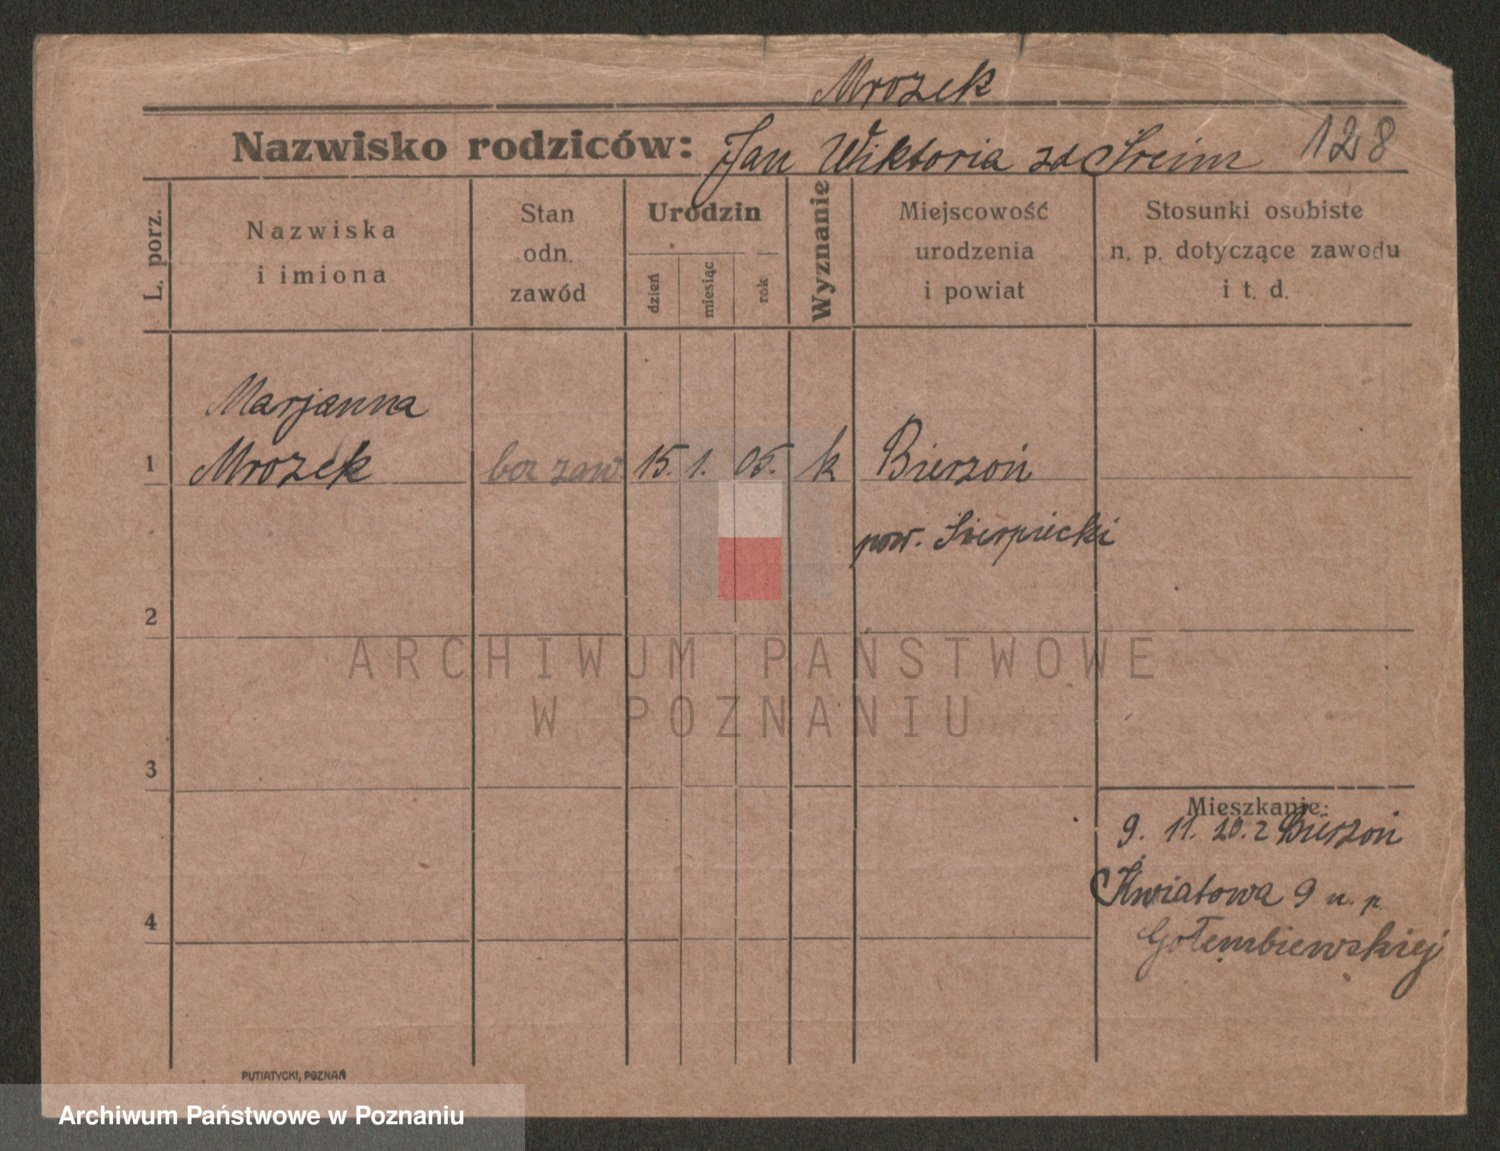 Mrozek
Nazwisko rodziców: Jan Wiktoria zd Śreim 128
L. porz.
Nazwiska
i imiona
Stan
odn.
zawód
Urodzin
dzień
miesiąc
rok
Wyznanie
Miejscowość
urodzenia
i powiat
Stosunki osobiste
n. p. dotyczące zawodu
i t. d.
Marjanna
1 Mrozek bez zaw 15. 1. 05. k Bierzoń
pow. Sierpiecki
2
ARCHIWUM PAŃSTWOWE
W POZNANIU
3
Mieszkanie:
9. 11. 20. z Bierzoń
Kwiatowa 9 u. p.
4
Gołembiewskiej
PUTIATYCKI, POZNAŃ
Archiwum Państwowe w Poznaniu